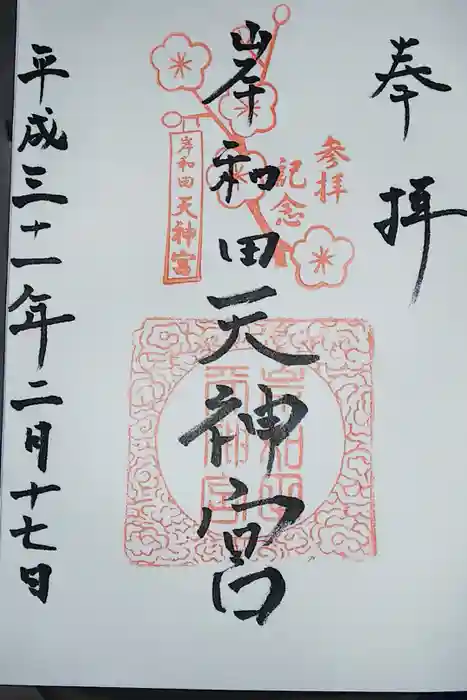 奉拝
参拝
記念
岸和田天神宮
岸和田天神宮
岸和田天神宮
平成三十一年二月十七日